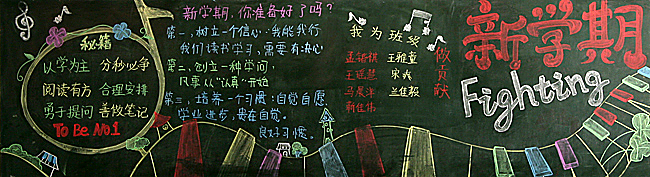 秘籍
以学为主 分秒必争
阅读有方 合理安排
勇于提问 善做笔记
To Be No1
新学期，你准备好了吗？
第一，树立一个信心：我能我行
我们读书学习，需要有决心
第二，创立一种学问：
凡事从“认真”开始
第三 培养一个习惯：自觉自愿
学业进步，贵在自觉。
良好习惯。
我为班级
做贡献
王雅童
新学期
Fighting